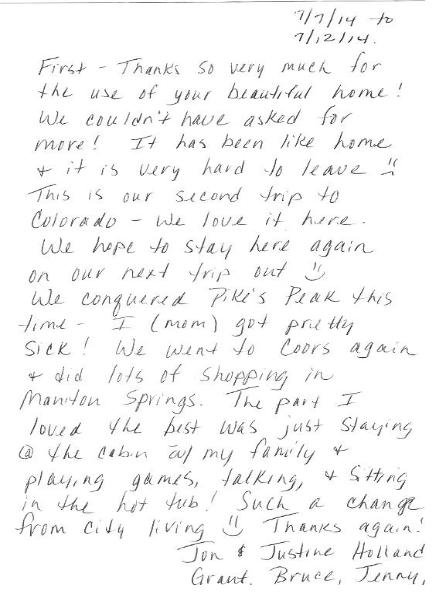 7/7/14 to
7/12/14.
First - Thanks so very much for
the use of your beautiful home!
We couldn't have asked for
more! It has been like home
& it is very hard to leave ☹
This is our second trip to
Colorado - We love it here.
We hope to stay here again
on our next trip out ☺
We conquered Pike's Peak this
time - I (mom) got pretty
sick! We went to Coors again
& did lots of shopping in
Maniton Springs. The part I
loved the best was just staying
@ the cabin w/ my family &
playing games, talking, & sitting
in the hot tub! Such a change
from city living ☺ Thanks again!
Jon & Justine Holland
Grant, Bruce, Jenny,